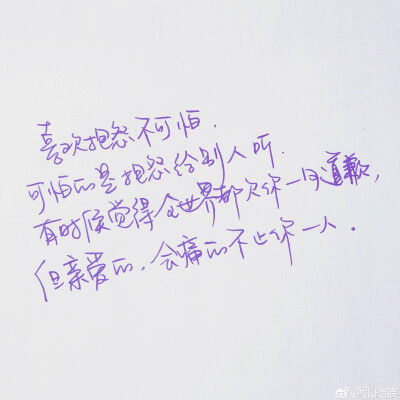 喜欢抱怨不可怕.
可怕的是抱怨给别人听.
有时候觉得全世界都欠你一句道歉,
但亲爱的,会痛的不止你一人.